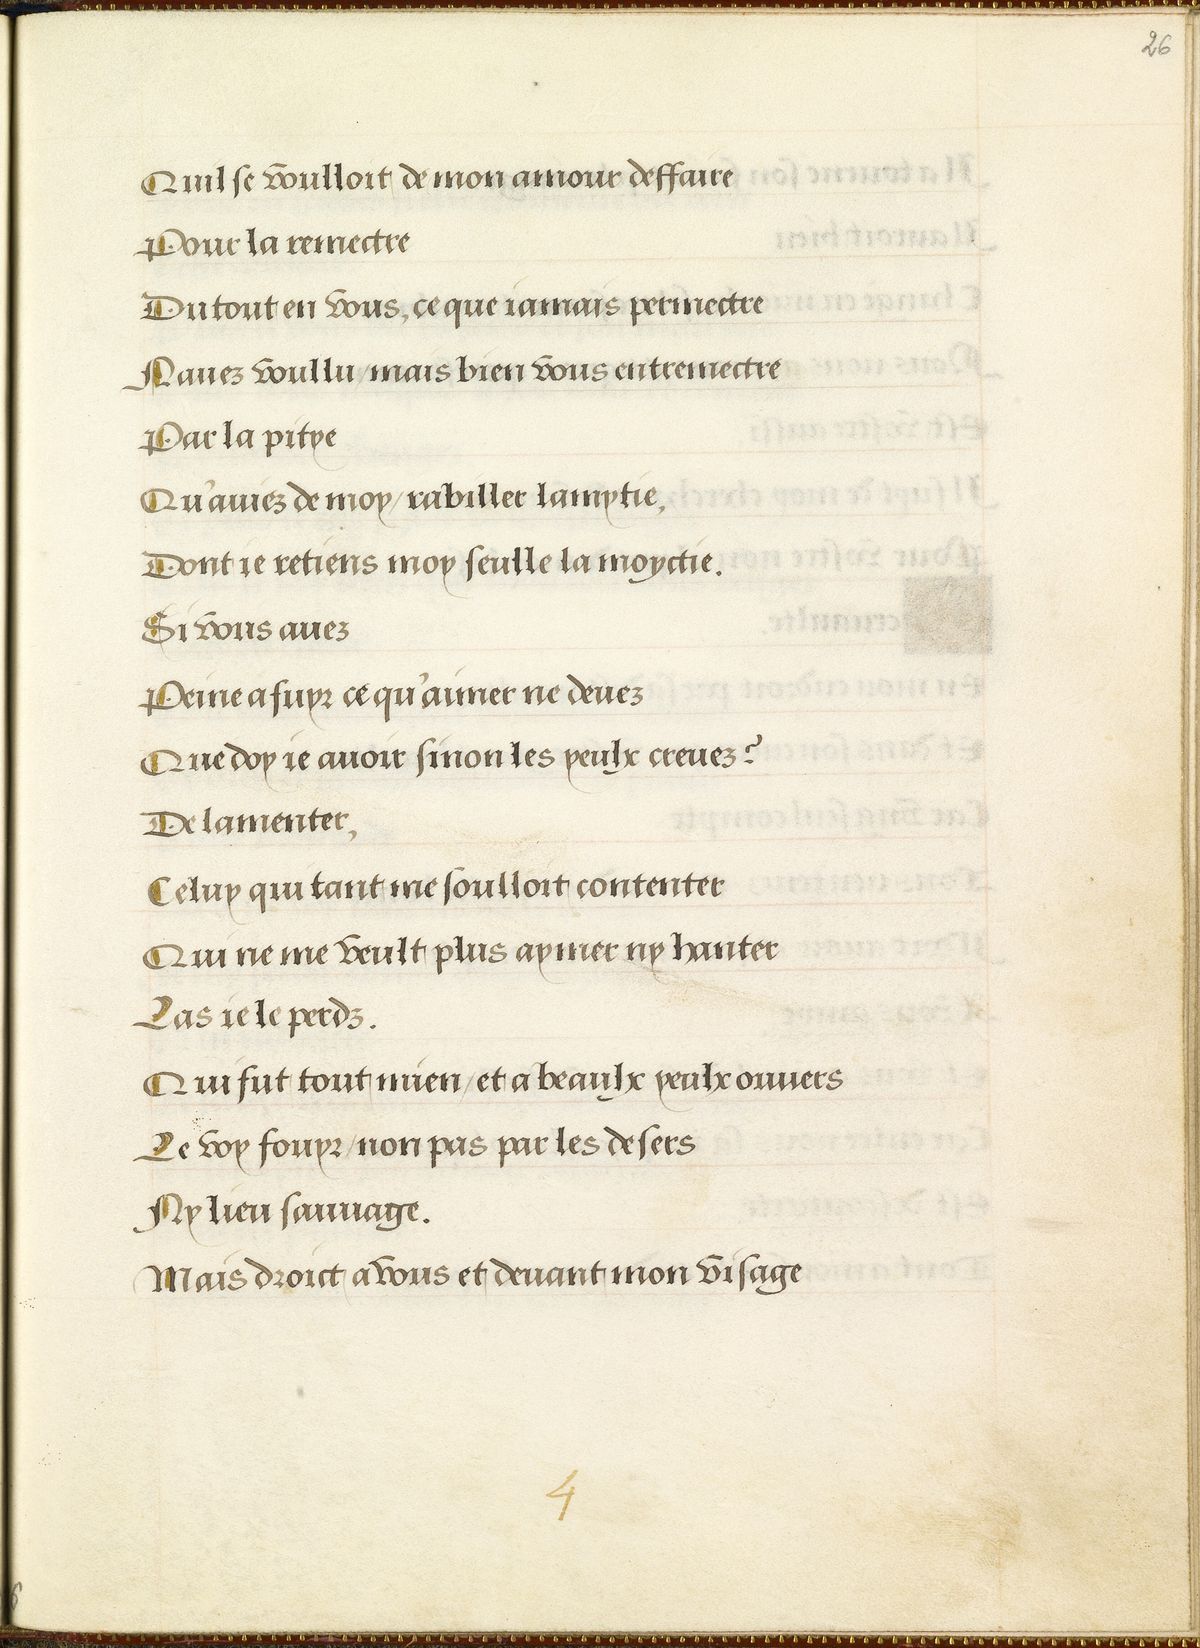 26
Quil se voulloit de mon amour deffaire
Pour la remectre
Du tout en vous, ce que iamais permectre
Nauez voullu/mais bien vous entremectre
Par la pitye
Qu'auiez de moy/rabiller lamytie,
Dont ie retiens moy seulle la moyctie.
Si vous auez
Peine a fuyr ce qu'aimer ne deuez
Que doy ie auoir sinon les yeulx creuez?
De lamenter,
Celuy qui tant me soulloit contenter
Qui ne me veult plus aymer ny hanter
Las ie le perdz.
Qui fut tout mien/et a beaulx yeulx ouuers
Le voy fouyr/non pas par les desers
Ny lieu sauuage.
Mais droict a vous et deuant mon visage
4